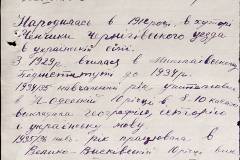 Народилась в 1910 році, в хуторі
Ченчики Чернігівського уєзда
в українській сім'ї.
З 1929р. вчилася в Миколаївському
педінституті до 1934р.
1934/35 навчальний рік учителювала
в Н-Одеській 8-10 класах
викладала географію, історію
і українську мову.
1935/36 навч. рік працювала в
Велико-Висківській